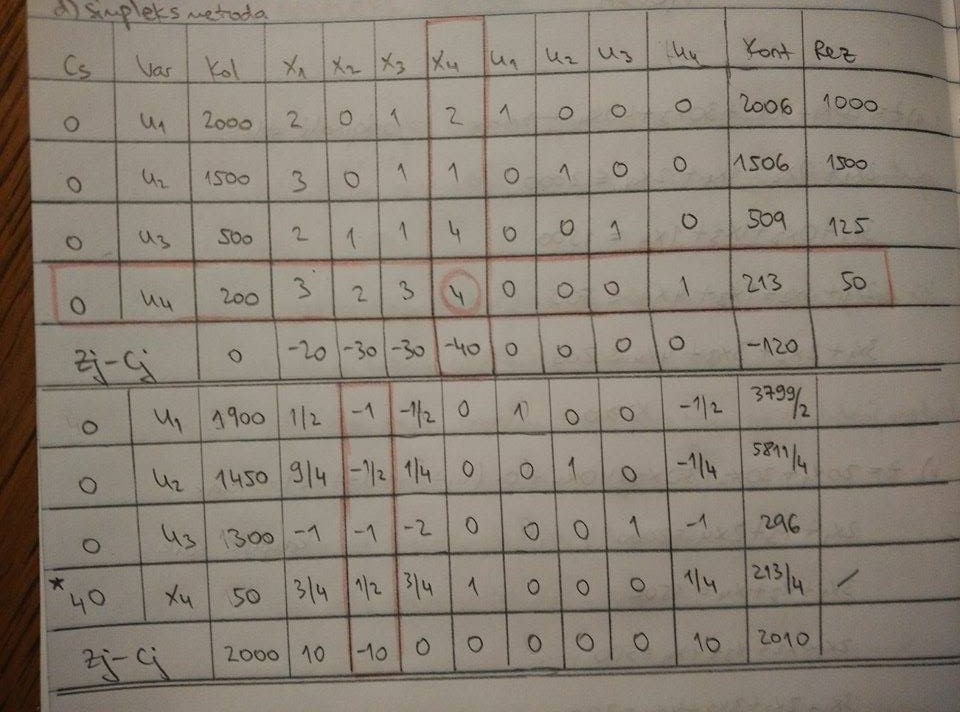 d) simpleks metoda
Cs Var Kol X1 X2 X3 X4 U1 U2 U3 U4 Kont Rez
0 U1 2000 2 0 1 2 1 0 0 0 2006 1000
0 U2 1500 3 0 1 1 0 1 0 0 1506 1500
0 U3 500 2 1 1 4 0 0 1 0 509 125
0 U4 200 3 2 3 4 0 0 0 1 213 50
Zj-Cj 0 -20 -30 -30 -40 0 0 0 0 -120
0 U1 1900 1/2 -1 -1/2 0 1 0 0 -1/2 3799/2
0 U2 1450 9/4 -1/2 1/4 0 0 1 0 -1/4 5811/4
0 U3 1300 -1 -1 -2 0 0 0 1 -1 296
*40 X4 50 3/4 1/2 3/4 1 0 0 0 1/4 213/4 /
Zj-Cj 2000 10 -10 0 0 0 0 0 10 2010